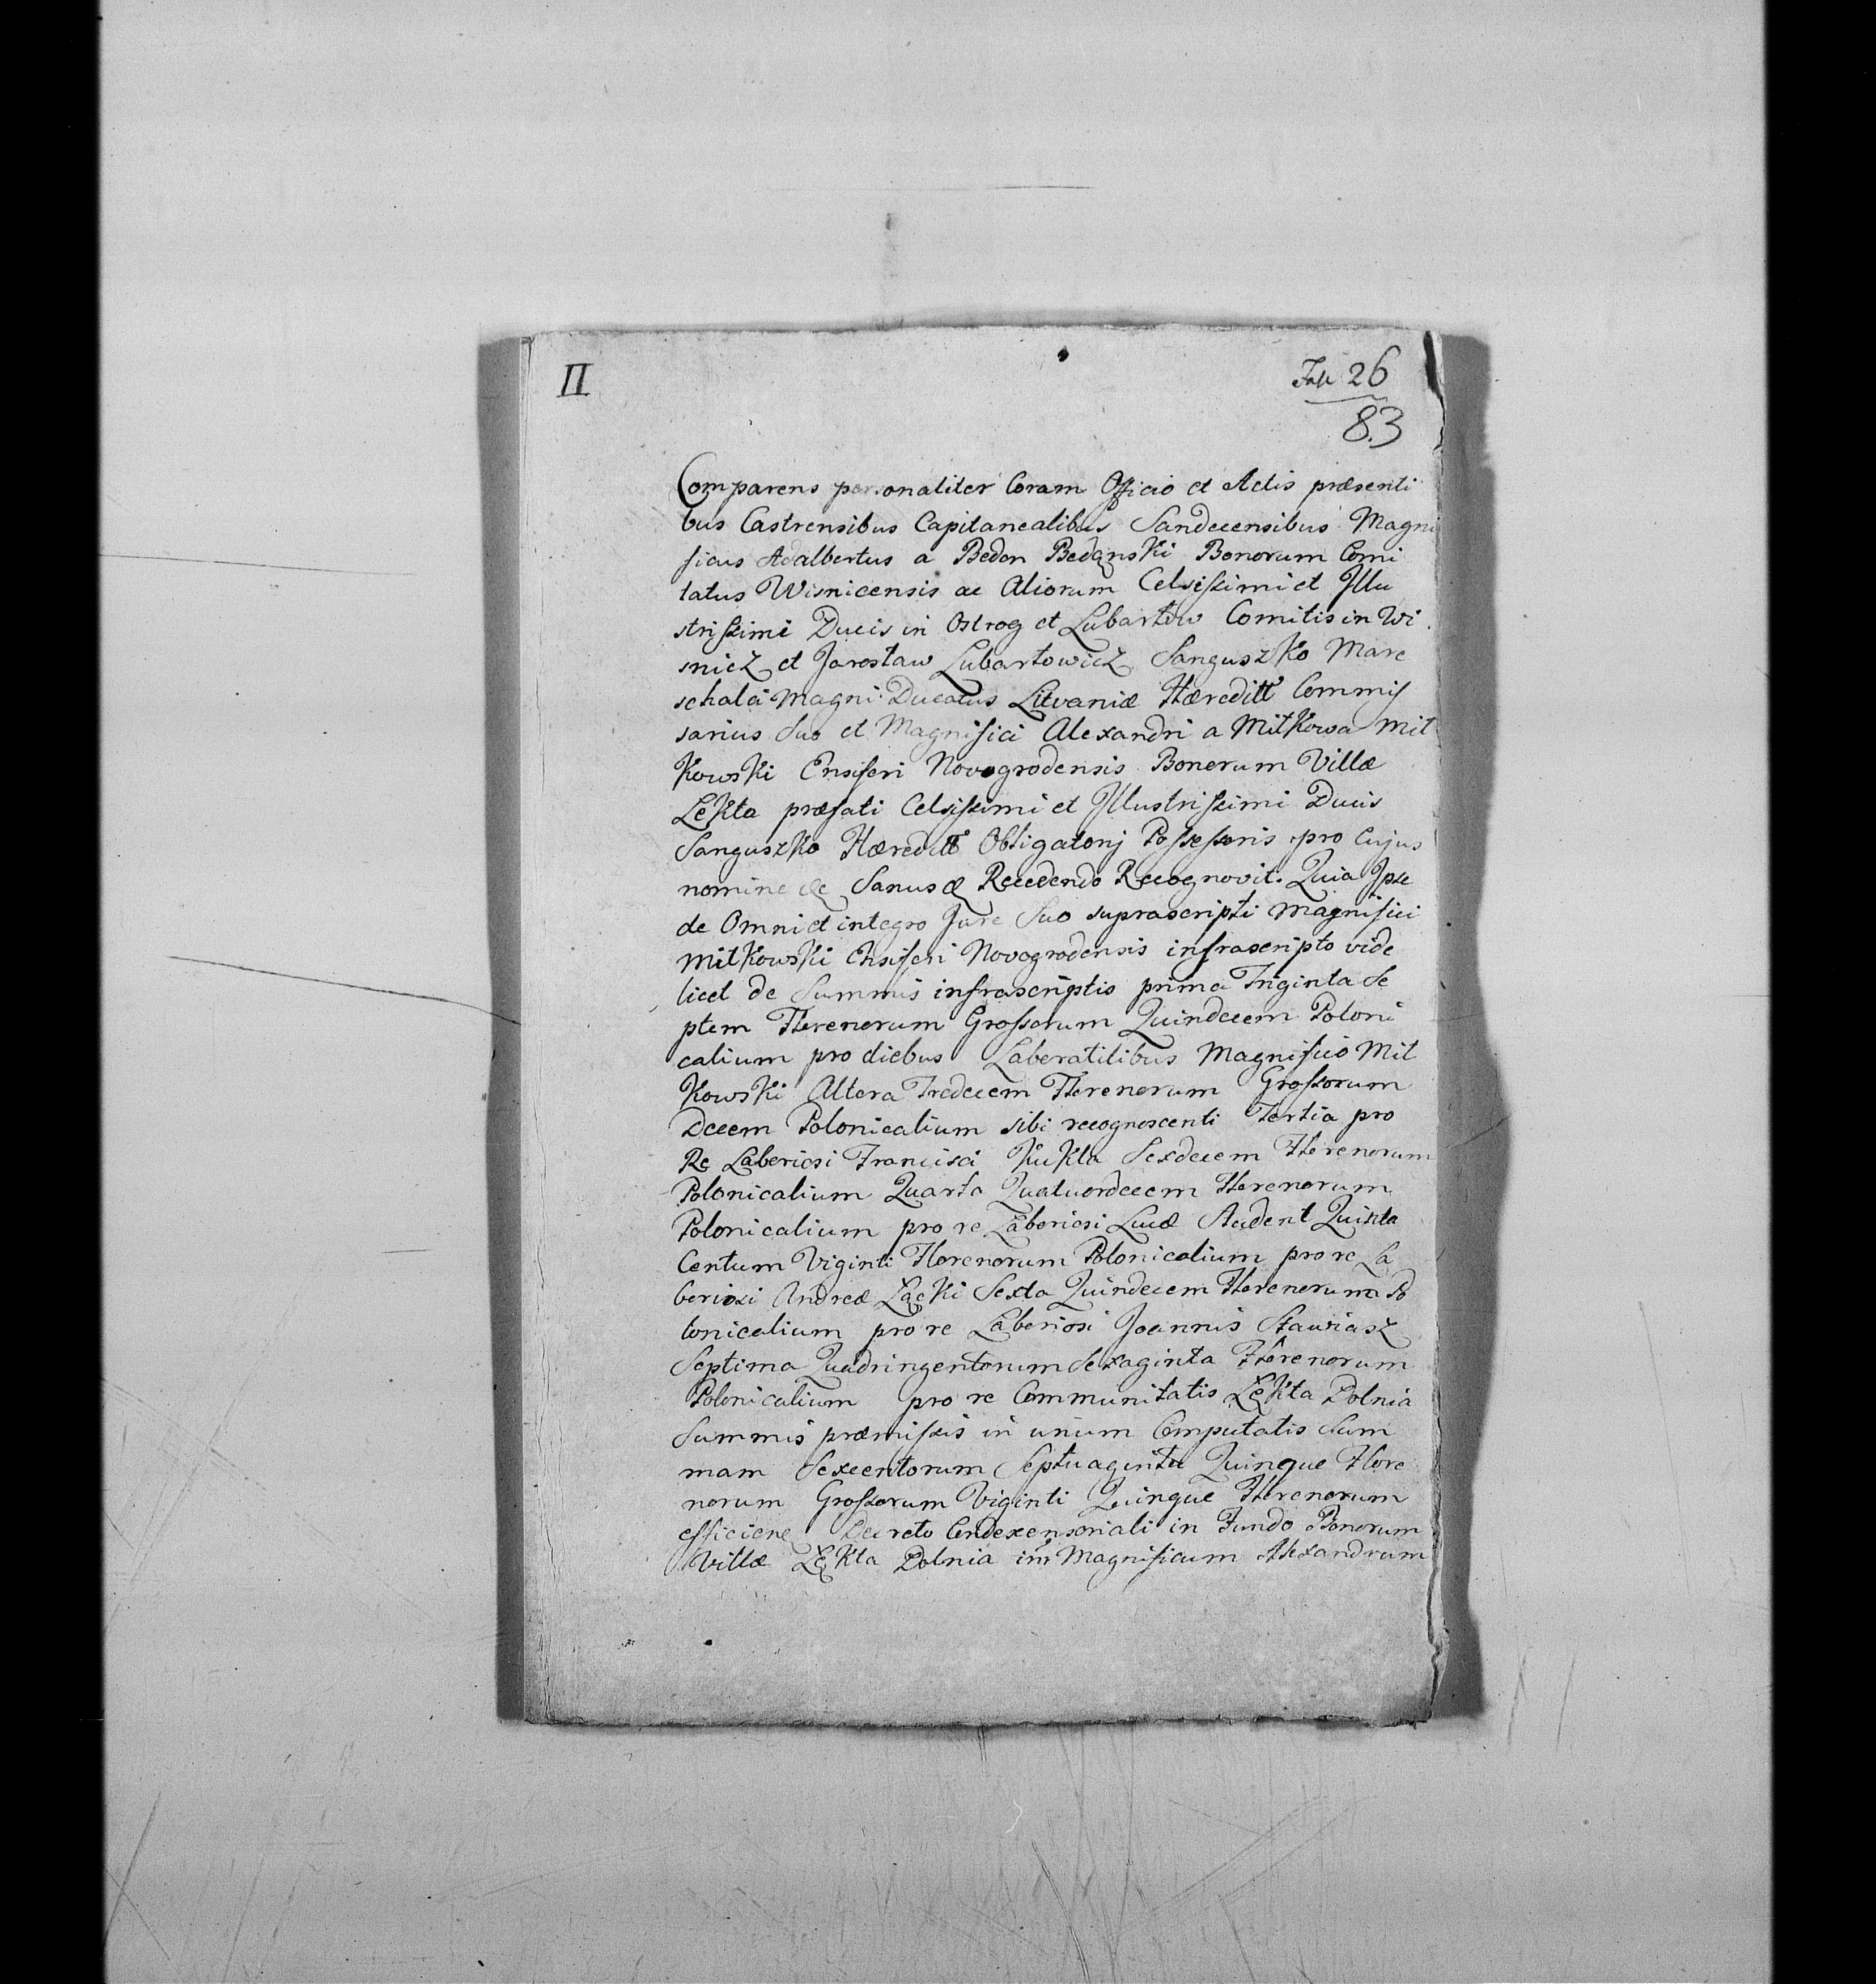 II
Fasc 26
83
Comparens personaliter Coram Officio et Actis præsenti
bus Castrensibus Capitanealibus Sandecensibus Magni
ficus Adalbertus a Bedon Bedonski Bonorum Comi
tatus Wisnicensis ac Aliorum Celsissimi et Illu
strissimi Ducis in Ostrog et Lubartow Comitis in Wi
snicz et Jarosław Lubartowicz Sanguszko Mare
schalci Magni Ducatus Litvaniæ Hæreditt Commis
sarius suo et Magnifici Alexandri a Mitkowa Mit
kowski Ensiferi Novogrodensis Bonorum Villæ
Łękta præfati Celsissimi et Illustrissimi Ducis
Sanguszko Hæreditt Obligatorij Possessoris pro cujus
nomine Sanus Recedendo Recognovit. Quia Ipse
de Omni et integro Jure Suo suprascripti Magnifici
Mitkowski Ensiferi Novogrodensis infrascripto vide
licet de Summis infrascriptis prima Triginta Se
ptem Florenorum Grossorum Quindecem Poloni
calium pro diebus Laboratilibus Magnifico Mit
kowski Altera Tredecem Florenorum Grossorum
Decem Polonicalium sibi recognoscenti Tertia pro
Re Laboriosi Francisci Kukla Sexdecem Florenorum
Polonicalium Quarta Quatuordecem Florenorum
Polonicalium pro re Laboriosi Lucæ Student Quinta
Centum Viginti Florenorum Polonicalium pro re La
boriosi Andreæ Łącki Sexta Quindecem Florenorum Po
lonicalium pro re Laboriosi Joannis Stawiasz
Septima Quadringentorum Sexaginta Florenorum
Polonicalium pro re Communitatis Łękta Dolnia
Summis præmissis in unum Computatis Sum
mam Sexcentorum Septuaginta Quinque Flore
norum Grossorum Viginti Quinque Florenorum
efficiene Decreto Condescensoriali in Fundo Bonorum
Villæ Łękta Dolnia inter Magnificum Alexandrum